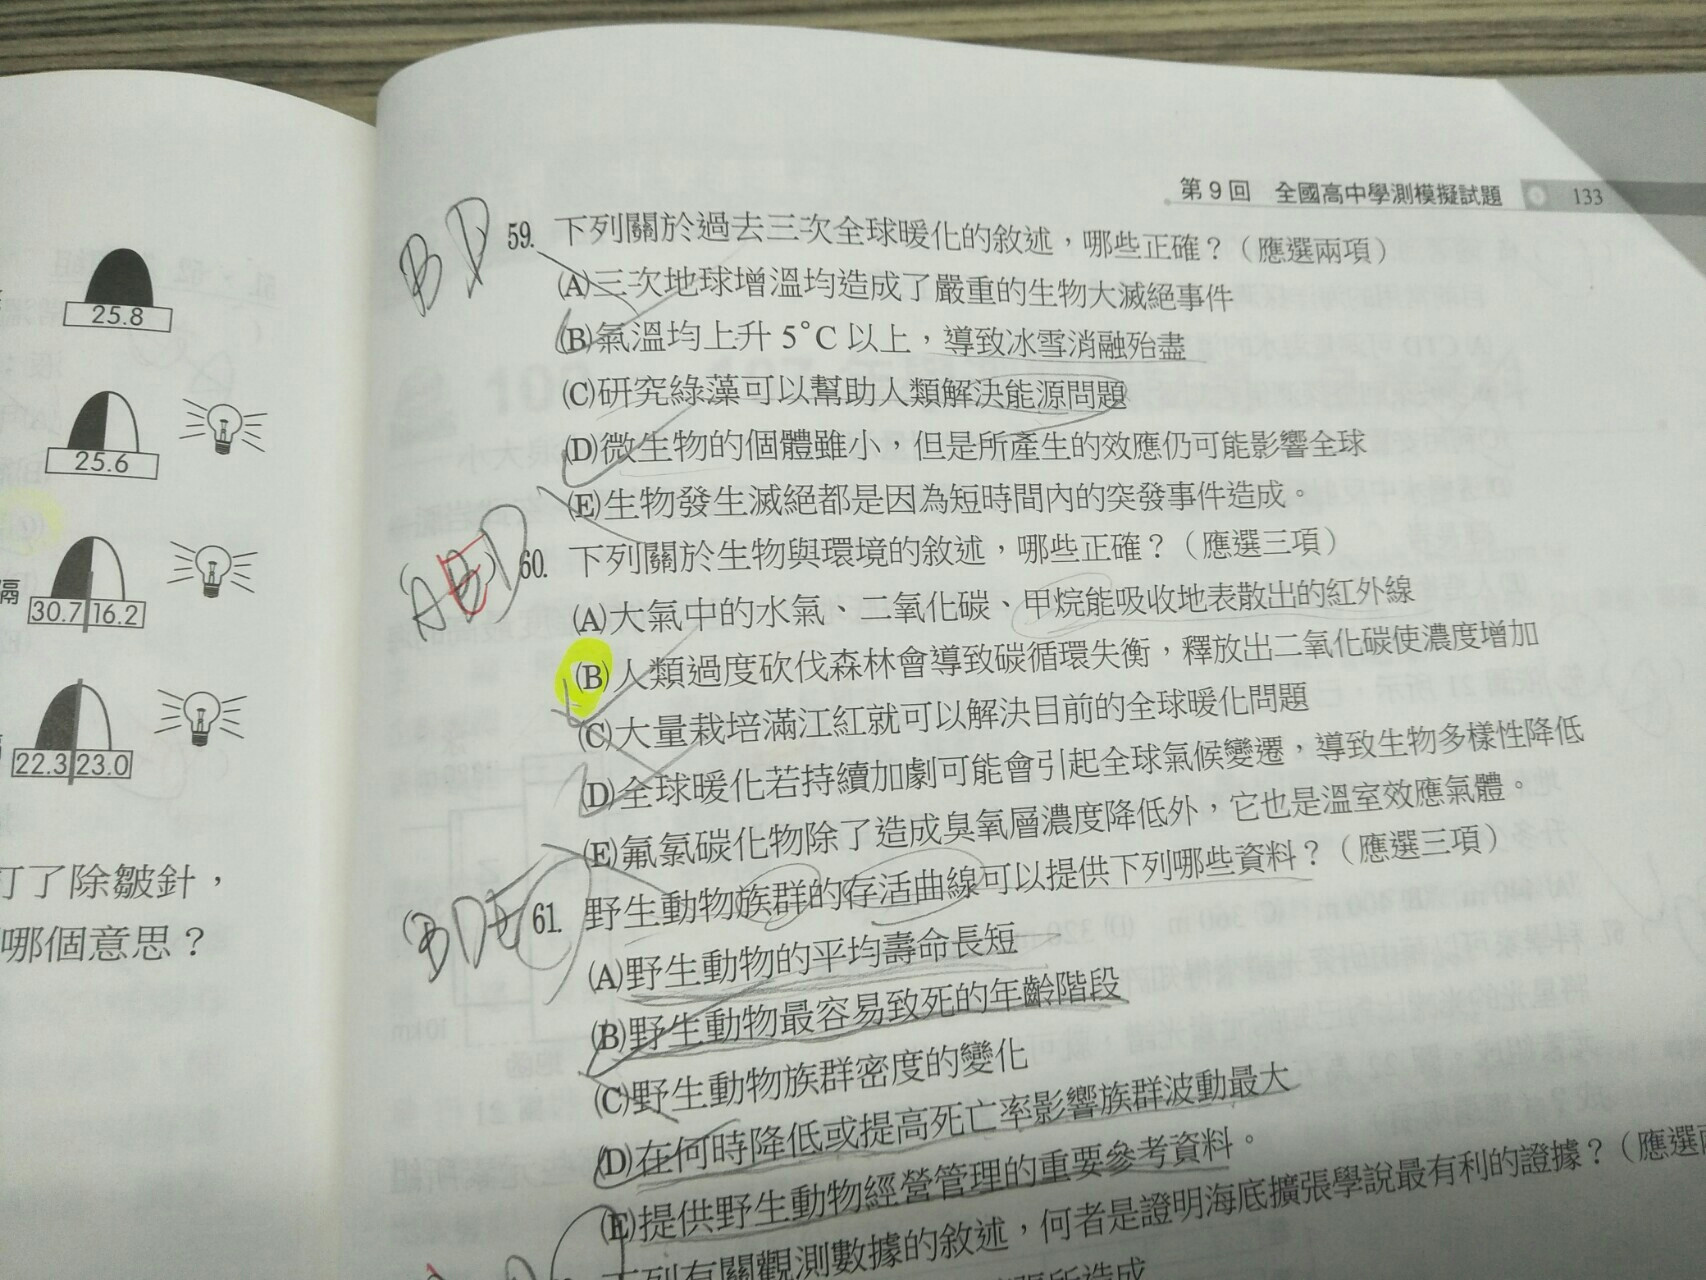 25.8
25.6
隔
30.7 16.2
22.3 23.0
打了除皺針，
哪個意思？
第9回 全國高中學測模擬試題 133
BD
59. 下列關於過去三次全球暖化的敘述，哪些正確？（應選兩項）
(A)三次地球增溫均造成了嚴重的生物大滅絕事件
(B)氣溫均上升 5°C 以上，導致冰雪消融殆盡
(C)研究綠藻可以幫助人類解決能源問題
(D)微生物的個體雖小，但是所產生的效應仍可能影響全球
(E)生物發生滅絕都是因為短時間內的突發事件造成。
60. 下列關於生物與環境的敘述，哪些正確？（應選三項）
(A)大氣中的水氣、二氧化碳、甲烷能吸收地表散出的紅外線
(B)人類過度砍伐森林會導致碳循環失衡，釋放出二氧化碳使濃度增加
(C)大量栽培滿江紅就可以解決目前的全球暖化問題
(D)全球暖化若持續加劇可能會引起全球氣候變遷，導致生物多樣性降低
(E)氟氯碳化物除了造成臭氧層濃度降低外，它也是溫室效應氣體。
BDE
61. 野生動物族群的存活曲線可以提供下列哪些資料？（應選三項）
(A)野生動物的平均壽命長短
(B)野生動物最容易致死的年齡階段
(C)野生動物族群密度的變化
(D)在何時降低或提高死亡率影響族群波動最大
(E)提供野生動物經營管理的重要參考資料。
下列有關觀測數據的敘述，何者是證明海底擴張學說最有利的證據？（應選
所造成